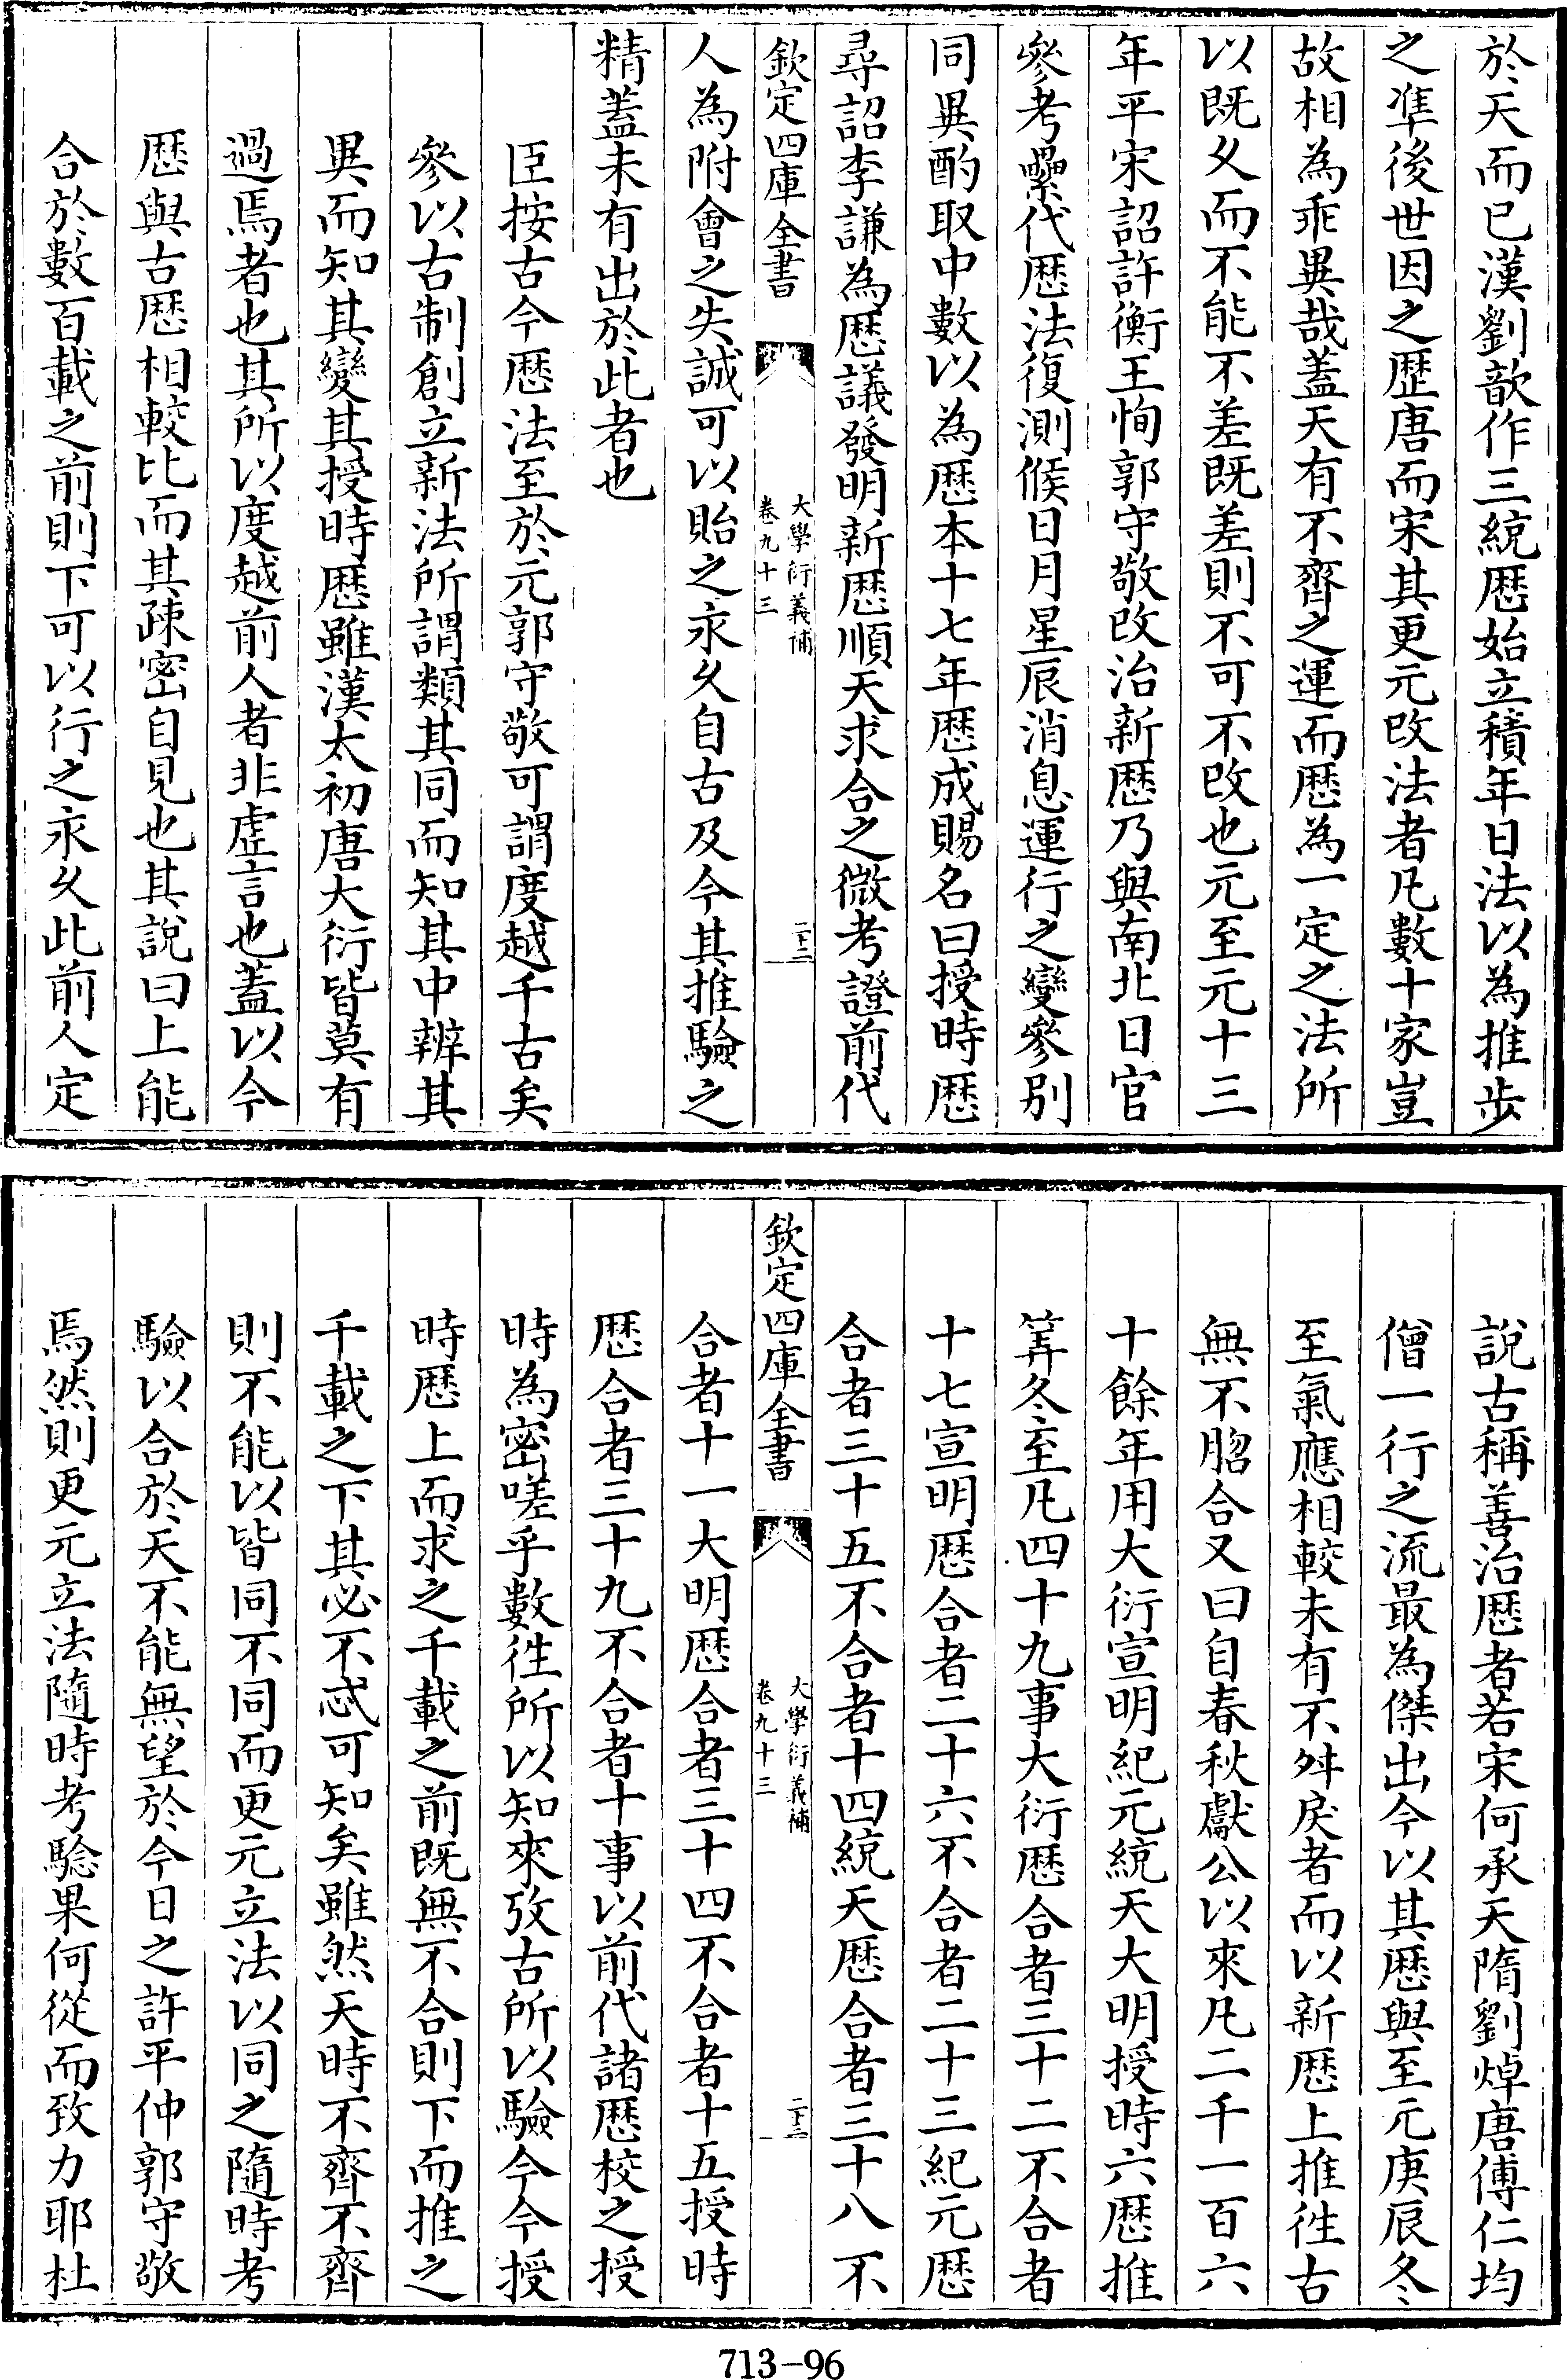 於天而已漢劉歆作三統厯始立積年日法以為推步
之凖後世因之歴唐而宋其更元改法者凡數十家豈
故相為乖異哉蓋天有不齊之運而厯為一定之法所
以既乆而不能不差既差則不可不改也元至元十三
年平宋詔許衡王恂郭守敬改治新厯乃與南北日官
參考纍代厯法復測候日月星辰消息運行之變參别
同異酌取中數以為厯本十七年厯成賜名曰授時厯
尋詔李謙為厯議發明新厯順天求合之微考證前代
欽定四庫全書
大學衍義補
卷九十三
二十二
人為附會之失誠可以貽之永乆自古及今其推驗之
精蓋未有出於此者也
臣按古今厯法至於元郭守敬可謂度越千古矣
參以古制創立新法所謂類其同而知其中辨其
異而知其變其授時厯雖漢太初唐大衍皆莫有
過焉者也其所以度越前人者非虚言也蓋以今
厯與古厯相較比而其疎密自見也其說曰上能
合於數百載之前則下可以行之永乆此前人定
說古稱善治厯者若宋何承天隋劉焯唐傅仁均
僧一行之流最為傑出今以其厯與至元庚辰冬
至氣應相較未有不舛戾者而以新厯上推徃古
無不脗合又曰自春秋獻公以來凡二千一百六
十餘年用大衍宣明紀元統天大明授時六厯推
筭冬至凡四十九事大衍厯合者三十二不合者
十七宣明厯合者二十六不合者二十三紀元厯
合者三十五不合者十四統天厯合者三十八不
欽定四庫全書
大學衍義補
卷九十三
二十三
合者十一大明厯合者三十四不合者十五授時
厯合者三十九不合者十事以前代諸厯校之授
時為密嗟乎數徃所以知來攷古所以驗今今授
時厯上而求之千載之前既無不合則下而推之
千載之下其必不忒可知矣雖然天時不齊不齊
則不能以皆同不同而更元立法以同之隨時考
驗以合於天不能無望於今日之許平仲郭守敬
焉然則更元立法隨時考騐果何從而致力耶杜
713-96